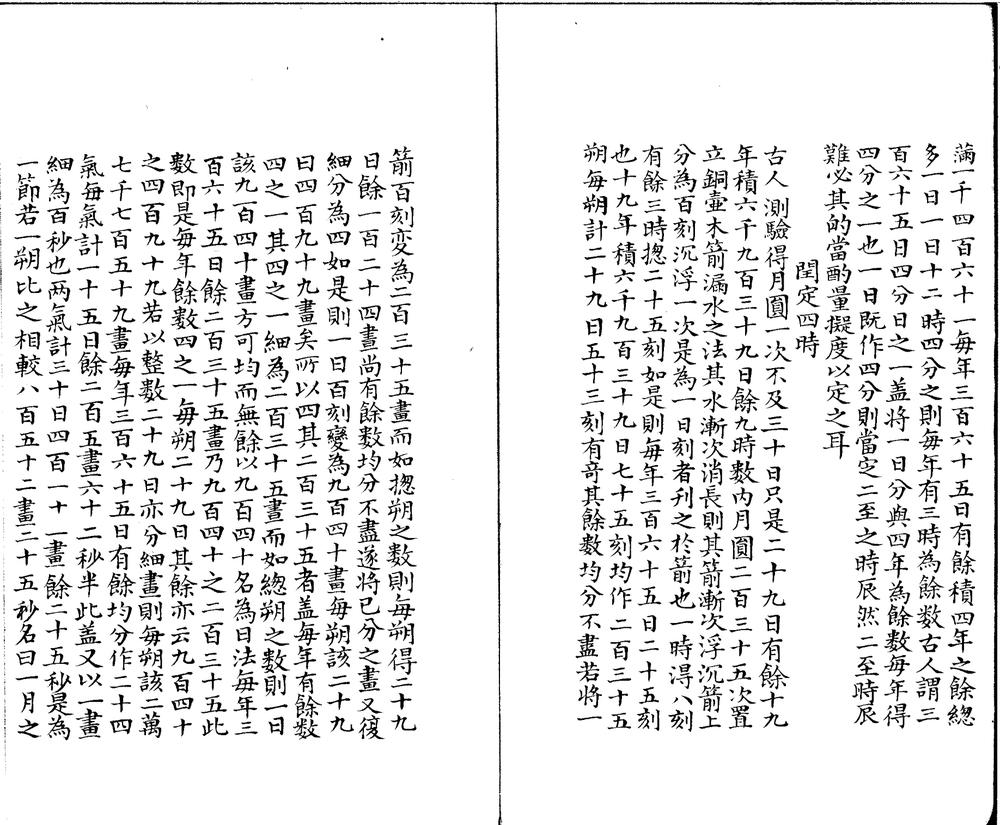 滿一千四百六十一每年三百六十五日有餘積四年之餘總
多一日一日十二時四分之則每年有三時為餘数古人謂三
百六十五日四分日之一盖將一日分與四年為餘数每年得
四分之一也一日既作四分則當定二至之時辰然二至時辰
難必其的當酌量擬度以定之耳
閏定四時
古人測驗得月圓一次不及三十日只是二十九日有餘十九
年積六千九百三十九日餘九時数內月圓二百三十五次置
立銅壷木箭漏水之法其水漸次消長則其箭漸次浮沉箭上
分為百刻沉浮一次是為一日刻者刋之於箭也一時淂八刻
有餘三時揔二十五刻如是則每年三百六十五日二十五刻
也十九年積六千九百三十九日七十五刻均作二百三十五
朔每朔計二十九日五十三刻有竒其餘数均分不盡若將一
箭百刻変為二百三十五畫而如揔朔之数則每朔得二十九
日餘一百二十四畫尚有餘数均分不盡遂將已分之畫又復
細分為四如是則一日百刻變為九百四十畫每朔該二十九
日四百九十九畫矣所以四其二百三十五者盖每年有餘数
四之一其四之一細為二百三十五畫而如總朔之数則一日
該九百四十畫方可均而無餘以九百四十名為日法每年三
百六十五日餘二百三十五畫乃九百四十之二百三十五此
数即是每年餘数四之一每朔二十九日其餘亦云九百四十
之四百九十九若以整数二十九日亦分細畫則每朔該二萬
七千七百五十九畫每年三百六十五日有餘均分作二十四
氣每氣計一十五日餘二百五畫六十二秒半此盖又以一畫
細為百秒也两氣計三十日四百一十一畫餘二十五秒是為
一節若一朔比之相較八百五十二畫二十五秒名曰一月之